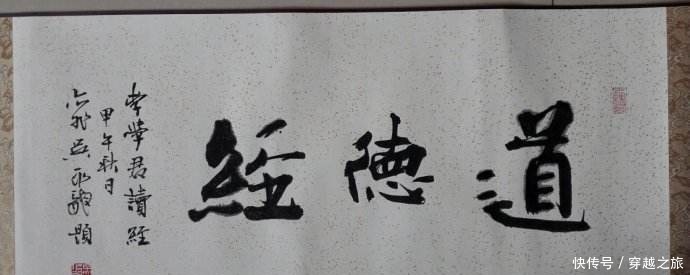 道德經
李學君讀經
甲午秋日
題
快传号／穿越之旅